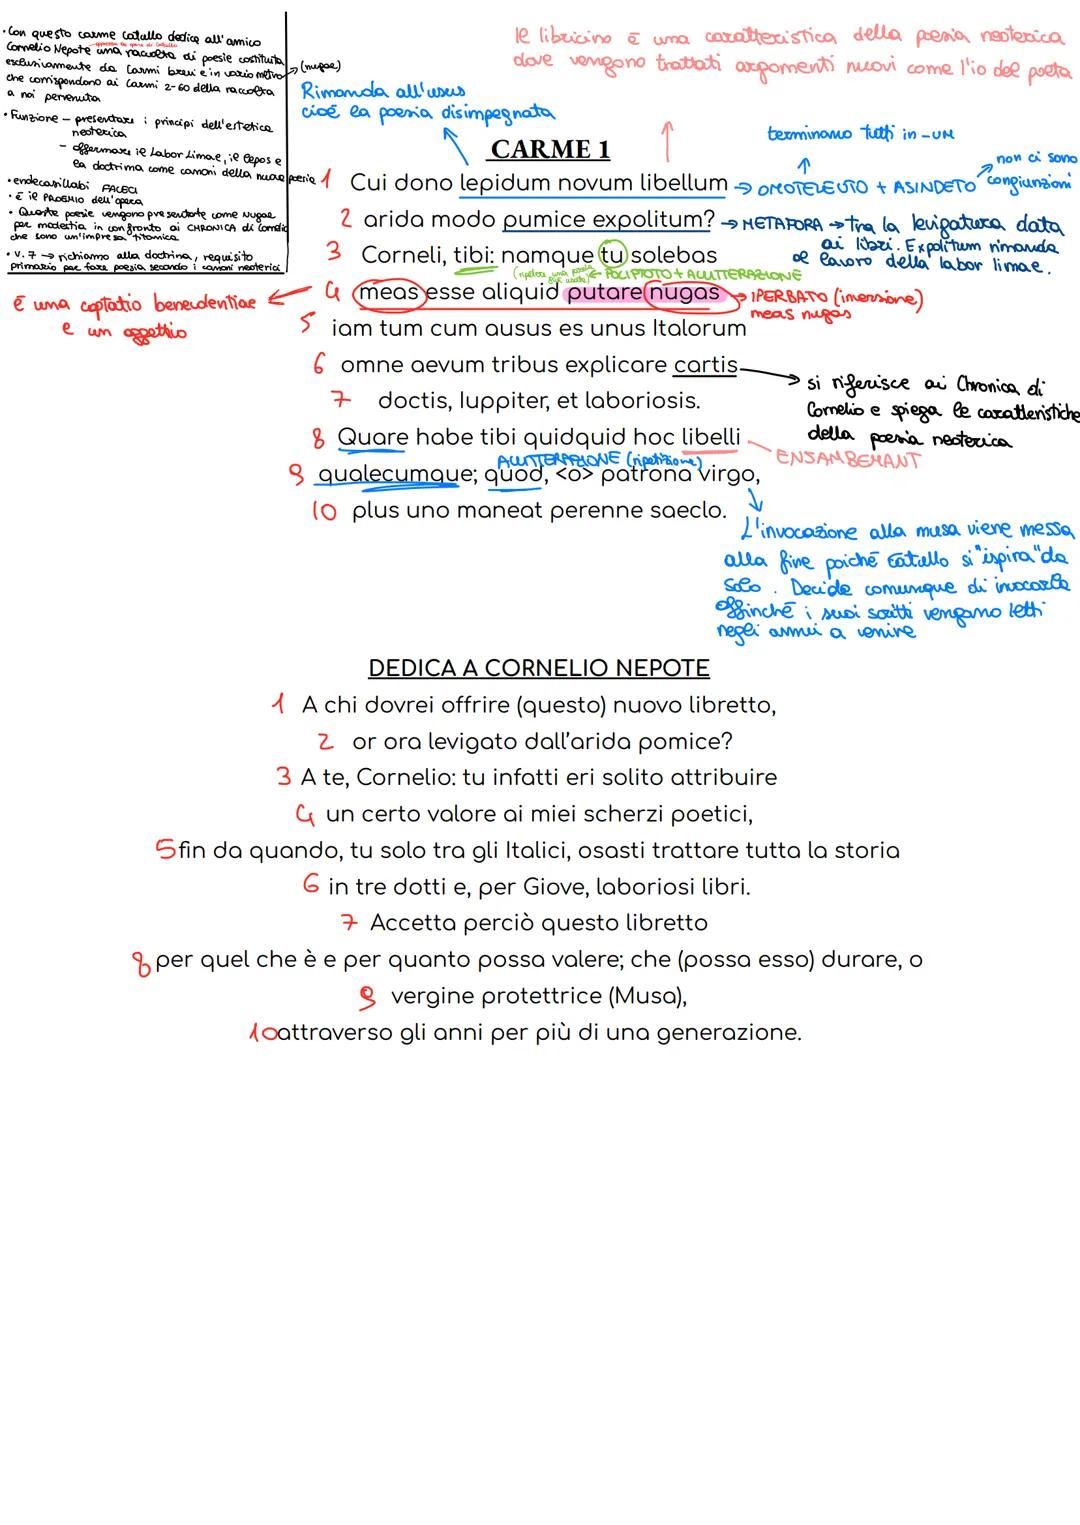 • Con questo carme Catullo dedica all'amico
Cornelio Nepote una raccolta di poesie costituita
esclusivamente da Carmi brevi e in vario metro → (nugae)
che corrispondono ai Carmi 2-60 della raccolta
a noi pervenuta
• Funzione — presentare i principi dell'estetica
neoterica
— affermare il Labor Limae, il lepos e
la doctrima come canoni della nuova poesia
• endecasillabi FALECI
• è il PROEMIO dell'opera
• Queste poesie vengono presentate come Nugae
per modestia in confronto ai CHRONICA di Cornelio
che sono un'impresa titanica
• V. 7 → richiamo alla doctrina, requisito
primario per fare poesia secondo i canoni neoterici
le libricino è una caratteristica della poesia neoterica
dove vengono trattati argomenti nuovi come l'io del poeta
Rimanda all'usus
cioè la poesia disimpegnata
terminano tutti in -UM
non ci sono
congiunzioni
CARME 1
1 Cui dono lepidum novum libellum → OMOTELEUTO + ASINDETO
2 arida modo pumice expolitum? → METAFORA → tra la levigatura data
ai libri. Expolitum rimanda
al lavoro della labor limae.
3 Corneli, tibi: namque tu solebas
POLIPTOTO + ALLITTERAZIONE
4 meas esse aliquid putare nugas → IPERBATO (inversione)
meas nugas
È una captatio benevolentiae
e un oggettio
5 iam tum cum ausus es unus Italorum
6 omne aevum tribus explicare cartis
si riferisce ai Chronica di
Cornelio e spiega le caratteristiche
della poesia neoterica
7 doctis, Iuppiter, et laboriosis.
8 Quare habe tibi quidquid hoc libelli
ENSAMBEMANT
ALLITTERAZIONE (ripetizione)
9 qualecumque; quod, <o> patrona virgo,
10 plus uno maneat perenne saeclo.
L'invocazione alla musa viene messa
alla fine poiché Catullo si "ispira" da
solo. Decide comunque di invocarla
affinché i suoi scritti vengano letti
negli annui a venire
DEDICA A CORNELIO NEPOTE
1 A chi dovrei offrire (questo) nuovo libretto,
2 or ora levigato dall'arida pomice?
3 A te, Cornelio: tu infatti eri solito attribuire
4 un certo valore ai miei scherzi poetici,
5 fin da quando, tu solo tra gli Italici, osasti trattare tutta la storia
6 in tre dotti e, per Giove, laboriosi libri.
7 Accetta perciò questo libretto
8 per quel che è e per quanto possa valere; che (possa esso) durare, o
9 vergine protettrice (Musa),
10 attraverso gli anni per più di una generazione.